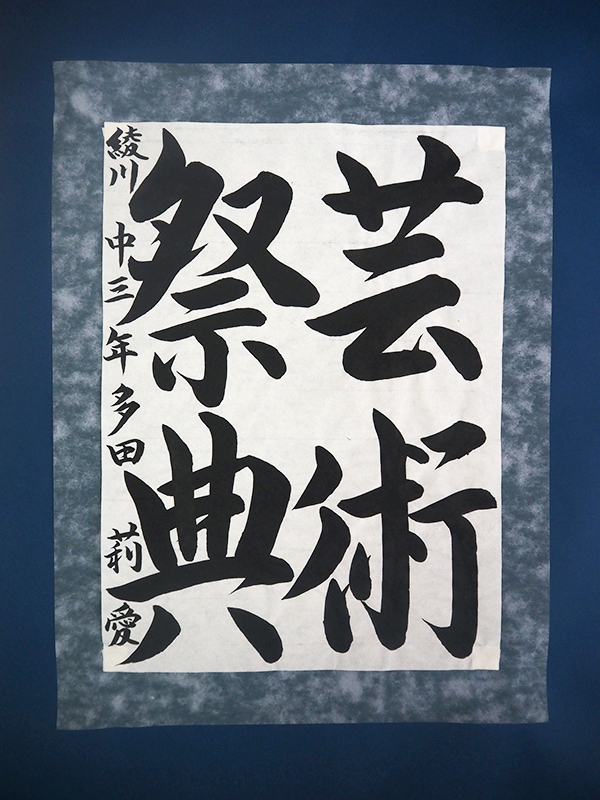 芸術
祭典
綾川 中三年 多田 莉愛